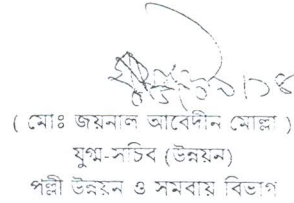 ( মোঃ জয়নাল আবেদীন মোল্লা )
যুগ্ম-সচিব (উন্নয়ন)
পল্লী উন্নয়ন ও সমবায় বিভাগ